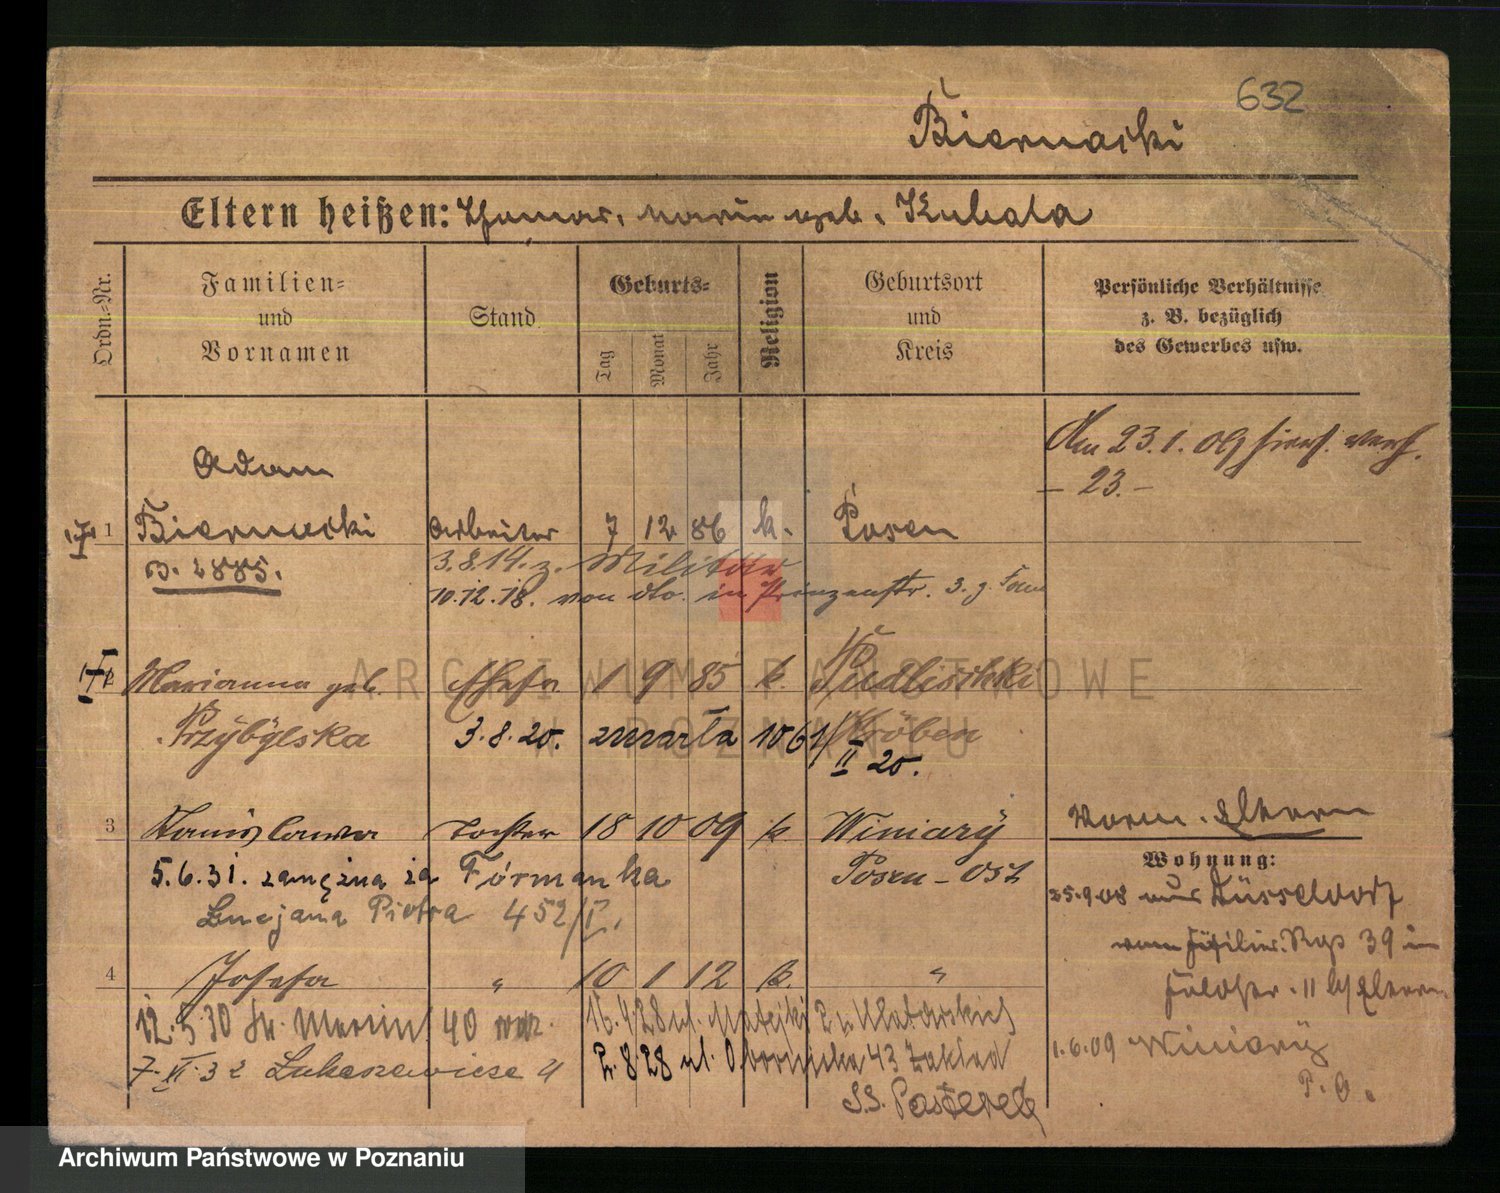 632
Biernacki
Eltern heißen: Thomas, Marie geb. Kubala
Ordn.-Nr.
Familien- und Vornamen
Stand
Geburts-
Tag
Monat
Jahr
Religion
Geburtsort und Kreis
Persönliche Verhältnisse z. B. bezüglich des Gewerbes usw.
Am 23.1.09
– 23. –
Adam
1 Biernacki Arbeiter 7 12 86 k. Posen
3.8.14. z. Militär
10.12.18. von do. in Prinzenstr. 3.
Marianna geb. Ehefr 1 9 85 k. Pudlischki
Przybylska 3.8.20. zmarła 1061/II 20. Kröben
3 Stanislawa Tochter 18 10 09 k. Winiary
Posen-Ost
5.6.31. zamężna za Formanka
Lucjana Piotra 452/I.
4 Josefa " 10 1 12 k. "
12.5.30 Św. Marcin 40
16.4.28 ul. Matejki 2
7.VI.32 Łukaszewicza 4
2.8.28 ul. Obornicka 43 Zakład
SS. Pasterek
Vorm. Eltern
Wohnung:
25.9.08 aus Düsseldorf
vom Füsilier. Rgs 39 in
11 b/Eltern
1.6.09 Winiary
P. O.
Archiwum Państwowe w Poznaniu
ARCHIWUM PAŃSTWOWE
W POZNANIU